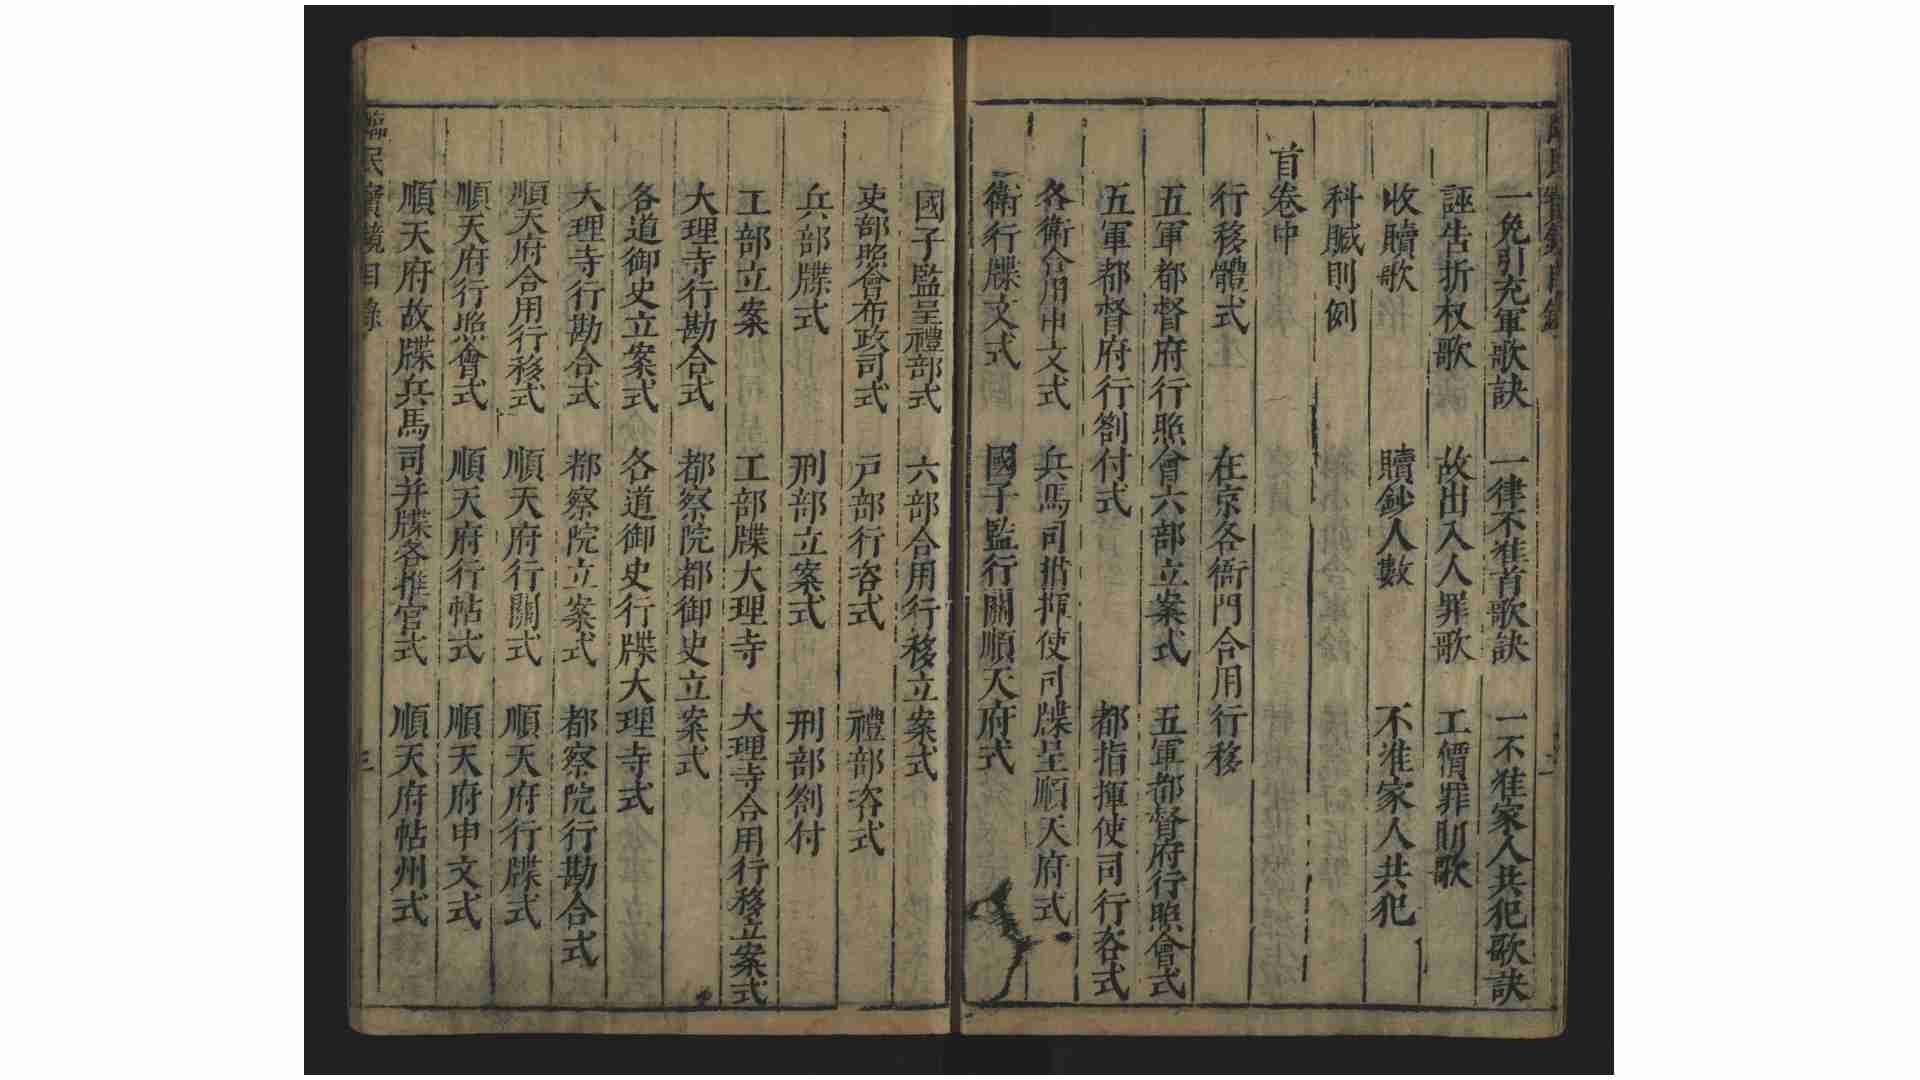 一免引充軍歌訣　一律不准首歌訣　一不准家人共犯歌訣
誣告折杖歌　故出入人罪歌　工價罪則歌
收贖歌　贖鈔人數　不准家人共犯
科贓則例
首卷中
行移體式　在京各衙門合用行移
五軍都督府行照會六部立案式　五軍都督府行照會式
五軍都督府行劄付式　都指揮使司行咨式
各衛合用申文式　兵馬司指揮使司牒呈順天府式
衛行牒文式　國子監行關順天府式
國子監呈禮部式　六部合用行移立案式
吏部照會布政司式　戶部行咨式　禮部咨式
兵部牒式　刑部立案式　刑部劄付
工部立案　工部牒大理寺　大理寺合用行移立案式
大理寺行勘合式　都察院都御史立案式
各道御史立案式　各道御史行牒大理寺式
大理寺行勘合式　都察院立案式　都察院行勘合式
順天府合用行移式　順天府行關式　順天府行牒式
順天府行照會式　順天府行帖式　順天府申文式
順天府故牒兵馬司并牒各推官式　順天府帖州式
臨民寶鏡目錄　三